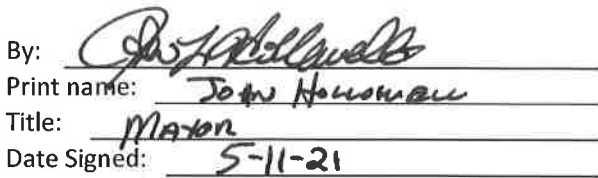 By:
Print name: John
Title: Mayor
Date Signed: 5-11-21